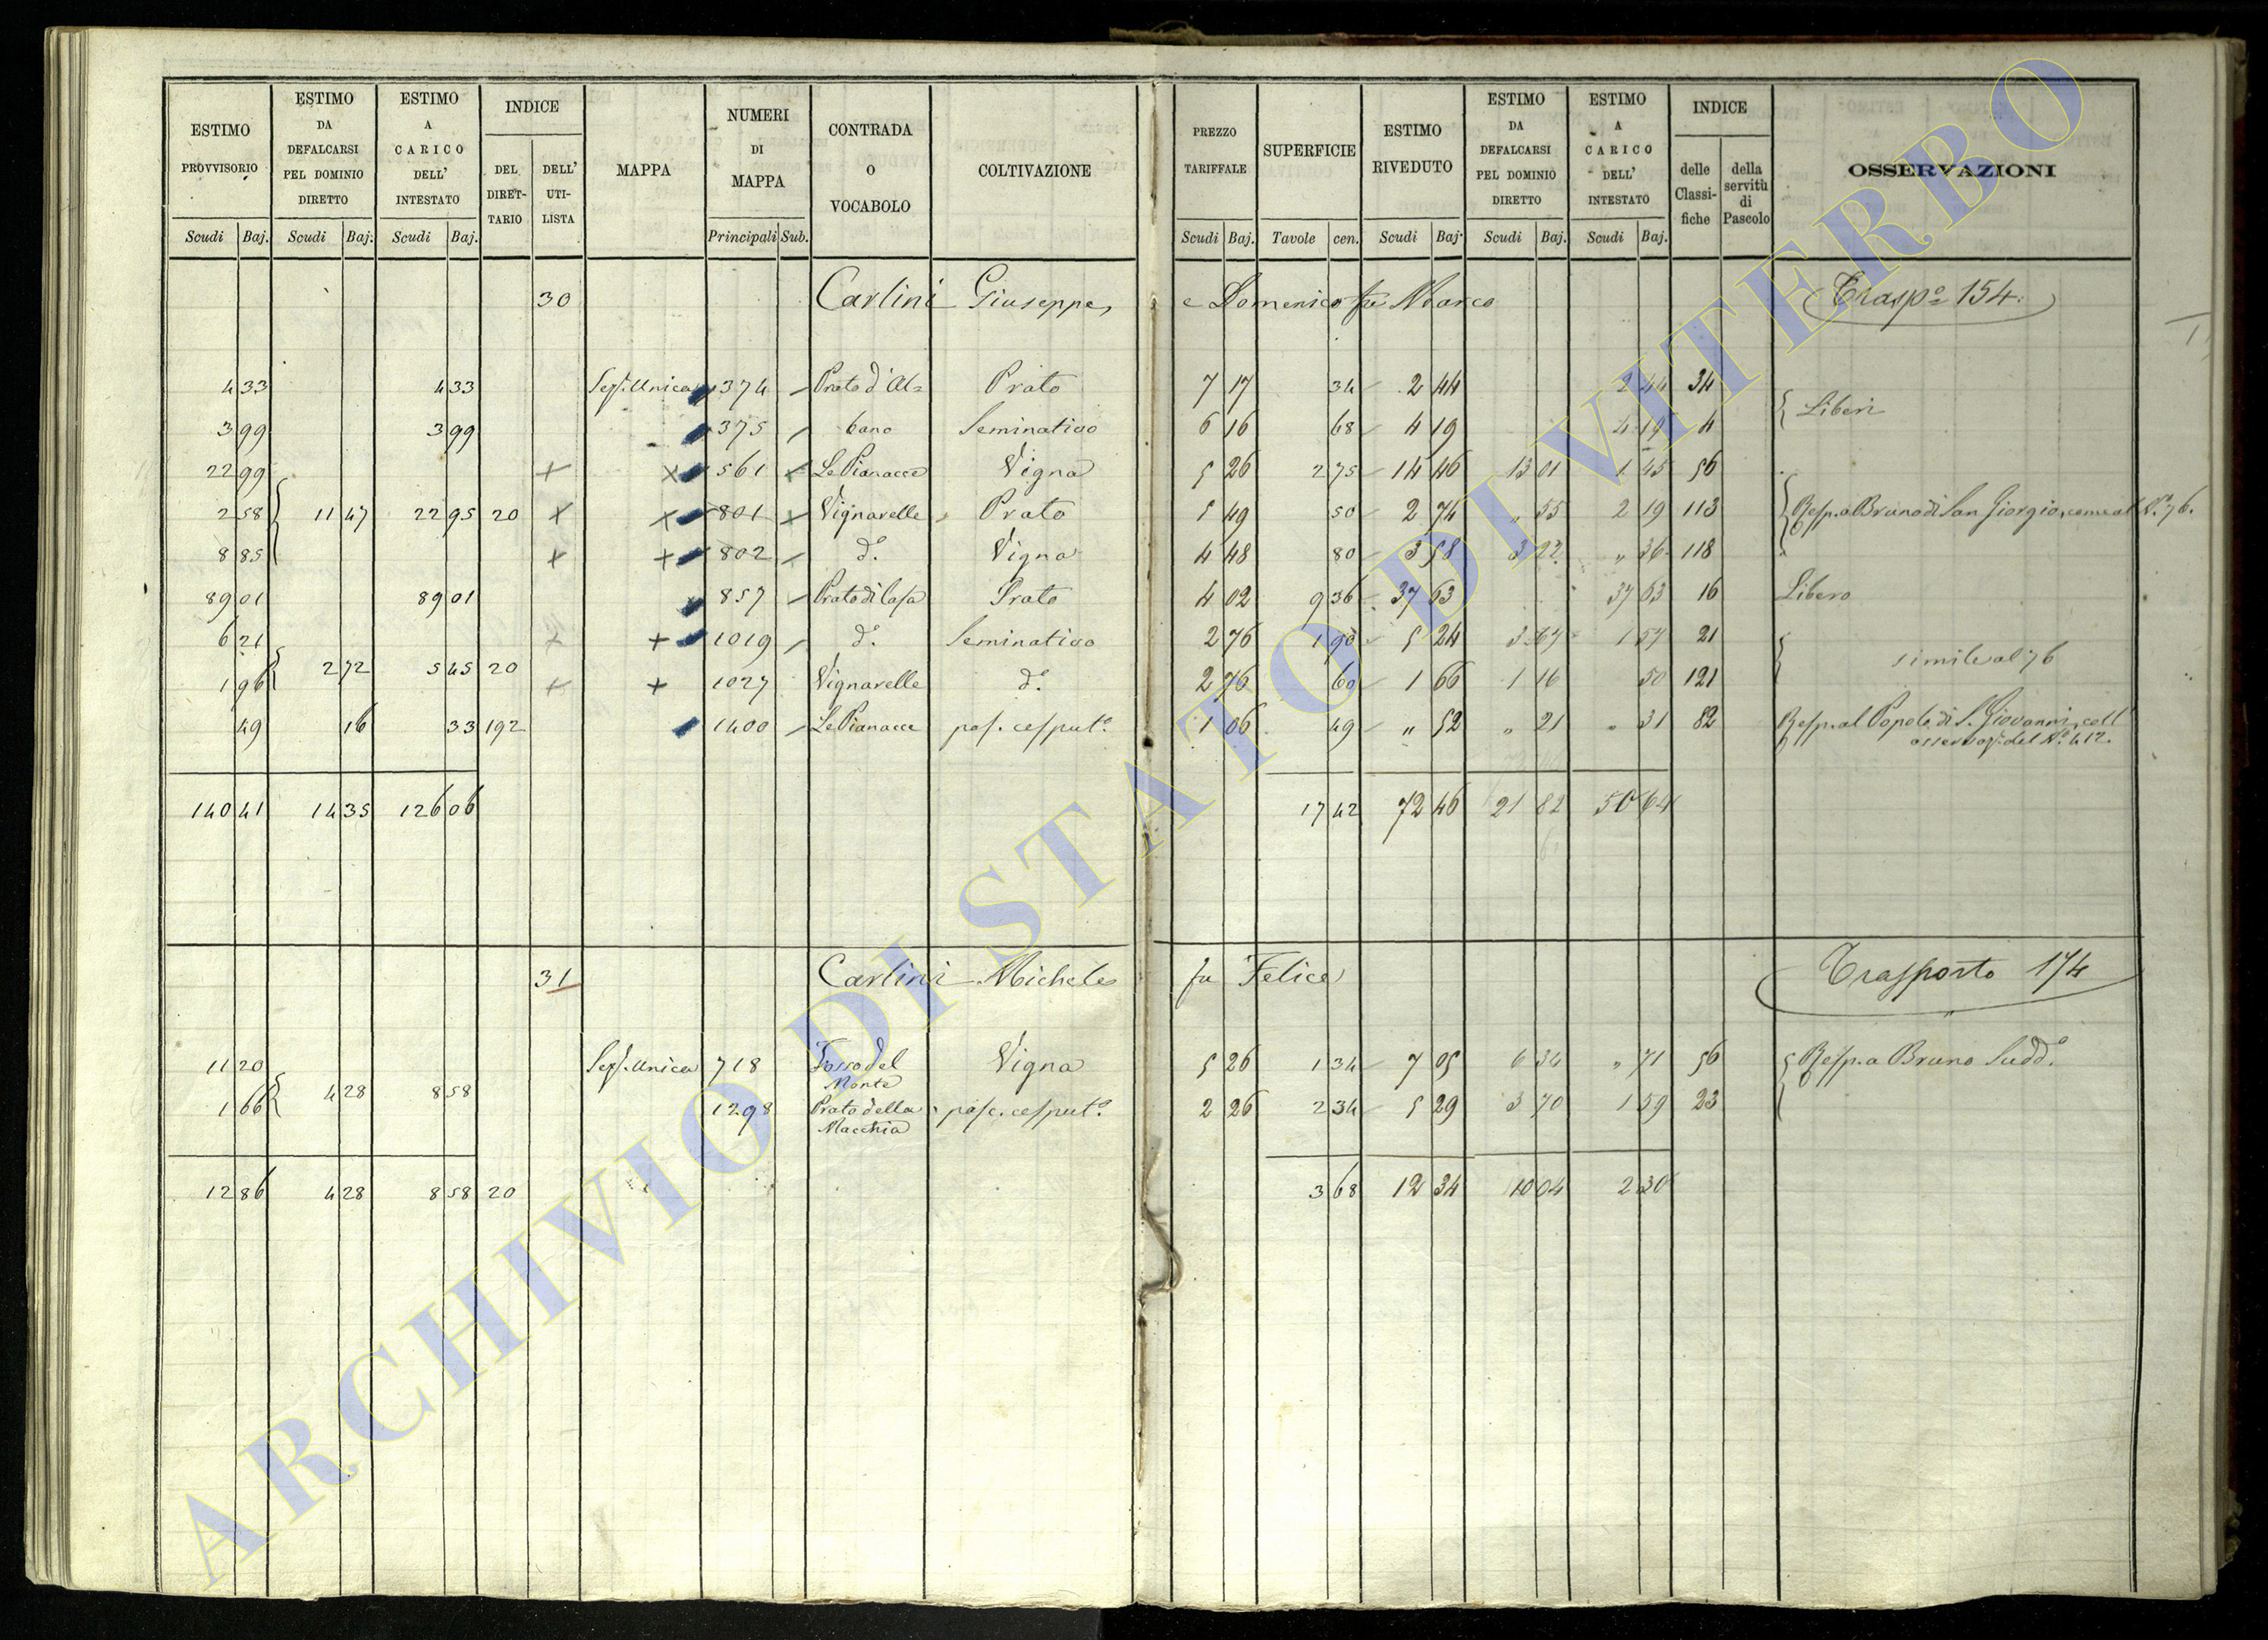 ESTIMO PROVVISORIO | ESTIMO DA DEFALCARSI PEL DOMINIO DIRETTO | ESTIMO A CARICO DELL' INTESTATO | INDICE | MAPPA | NUMERI DI MAPPA | CONTRADA O VOCABOLO | COLTIVAZIONE | PREZZO TARIFFALE | SUPERFICIE | ESTIMO RIVEDUTO | ESTIMO DA DEFALCARSI PEL DOMINIO DIRETTO | ESTIMO A CARICO DELL' INTESTATO | INDICE | OSSERVAZIONI
DEL DIRET-TARIO | DELL' UTI-LISTA | delle Classi-fiche | della servitù di Pascolo
Scudi Baj. | Scudi Baj. | Scudi Baj. | Principali Sub. | Scudi Baj. | Tavole cen. | Scudi Baj. | Scudi Baj. | Scudi Baj.
30 Carlini Giuseppe, e Domenico fu Marco Trasp.o 154.
4 33 | 4 33 | Sez. Unica | 374 | Prato d'Al= | Prato | 7 17 | 34 | 2 44 | 2 44 | 34 | Liberi
3 99 | 3 99 | 375 | bano | Seminativo | 6 16 | 68 | 4 19 | 4 19 | 4
22 99 | + | × | 561 | Le Pianacce | Vigna | 5 26 | 2 75 | 14 46 | 13 01 | 1 45 | 56
2 58 | 11 47 | 22 95 | 20 | × | × | 801 | Vignarelle | Prato | 5 49 | 50 | 2 74 | " 55 | 2 19 | 113 | Resp. a Bruno di San Giorgio, come al N.o 76.
8 85 | × | + | 802 | d.o | Vigna | 4 48 | 80 | 3 58 | 3 22 | " 36 | 118
89 01 | 89 01 | 857 | Prato di Casa | Prato | 4 02 | 9 36 | 37 63 | 37 63 | 16 | Libero
6 21 | + | + | 1019 | d.o | Seminativo | 2 76 | 1 90 | 5 24 | 3 67 | 1 57 | 21
1 96 | 2 72 | 5 45 | 20 | + | + | 1027 | Vignarelle | d.o | 2 76 | 60 | 1 66 | 1 16 | 50 | 121 | simile al 76
49 | 16 | 33 | 192 | 1400 | Le Pianacce | pas. cesput.o | 1 06 | 49 | " 52 | " 21 | " 31 | 82 | Resp. al Popolo di S. Giovanni, coll'
osservaz. del N.o 412.
140 41 | 14 35 | 126 06 | 17 42 | 72 46 | 21 82 | 50 64
31 Carlini Michele fu Felice Trasporto 174
11 20 | Sez. Unica | 718 | Fosso del Monte | Vigna | 5 26 | 1 34 | 7 05 | 6 34 | " 71 | 56 | Resp. a Bruno Sudd.o
1 66 | 4 28 | 8 58 | 1298 | Prato della Macchia | pasc. cesput.o | 2 26 | 2 34 | 5 29 | 3 70 | 1 59 | 23
12 86 | 4 28 | 8 58 | 20 | 3 68 | 12 34 | 10 04 | 2 30
ARCHIVIO DI STATO DI VITERBO